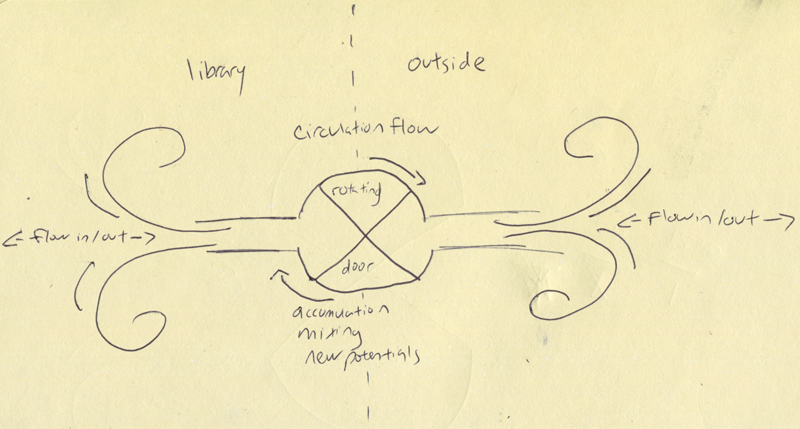 library
outside
circulation flow
rotating
<- flow in/out ->
<- flow in/out ->
door
accumulation
mixing
new potentials